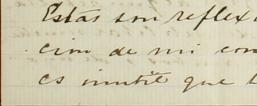 Estas son reflex
cion de mi con
es inutil que t